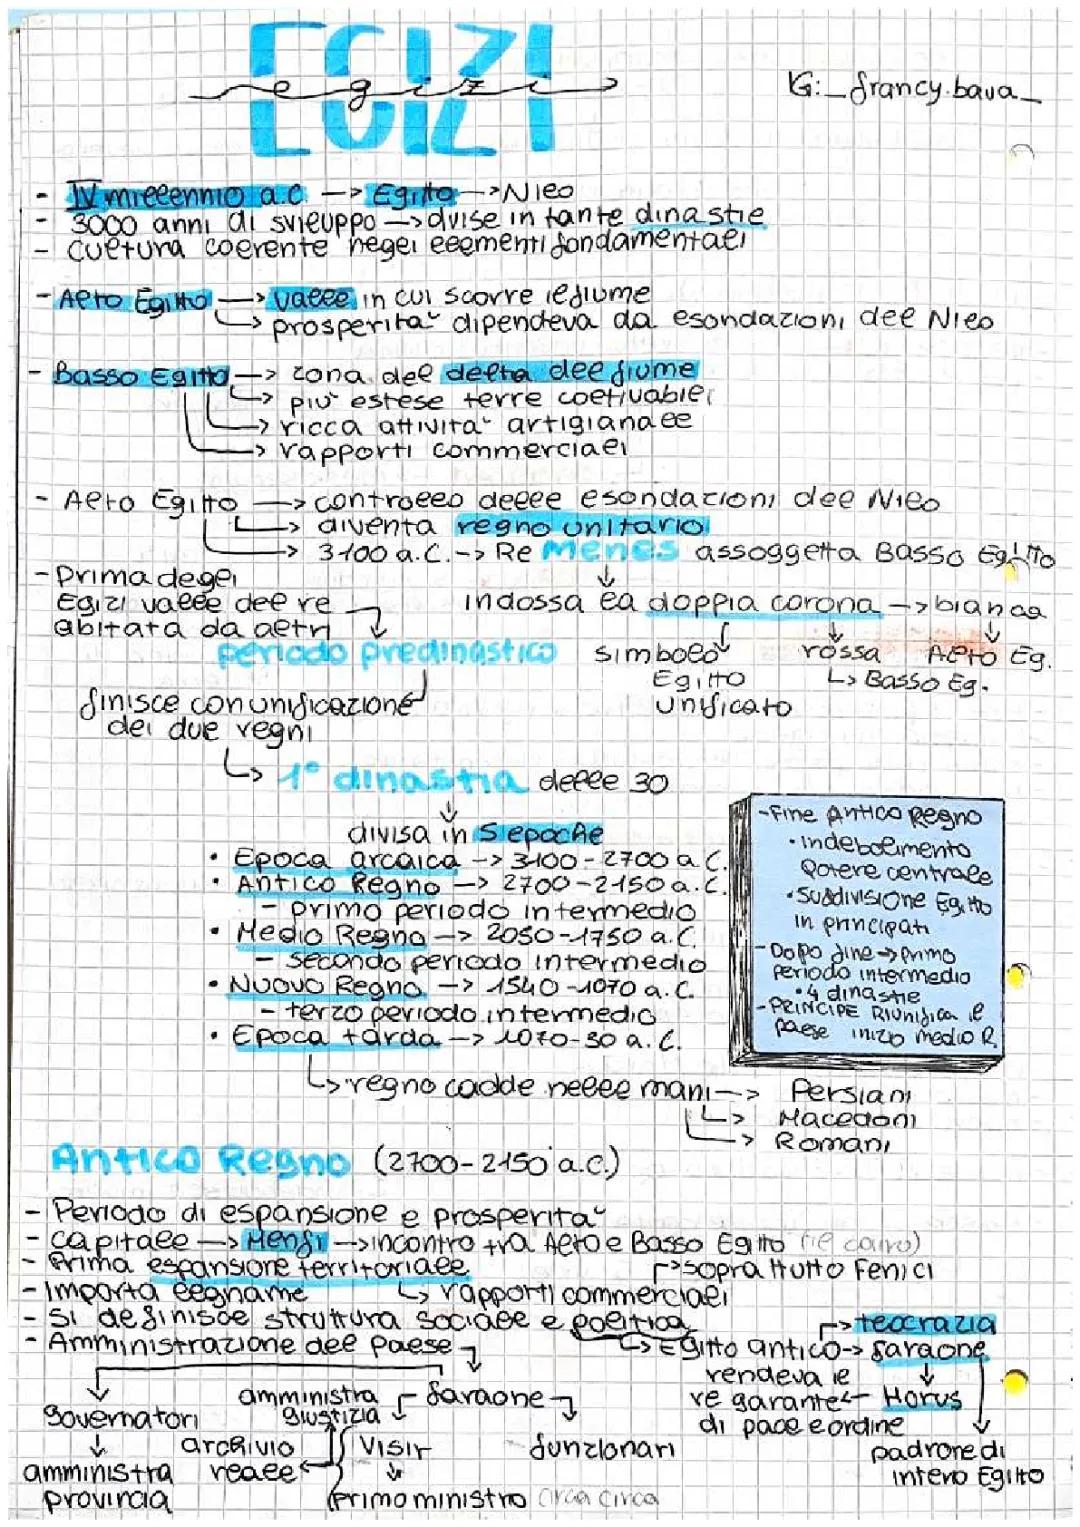 EGIZI
egizi
IG:_francy.bava_
- IV millennio a.C. -> Egitto -> Nilo
- 3000 anni di sviluppo -> divise in tante dinastie
- Cultura coerente negli elementi fondamentali
- Alto Egitto -> valle in cui scorre il fiume
-> prosperità dipendeva da esondazioni del Nilo
- Basso Egitto -> zona del delta del fiume
-> più estese terre coltivabili
-> ricca attività artigianale
-> rapporti commerciali
- Alto Egitto -> controllo delle esondazioni del Nilo
-> diventa regno unitario
-> 3100 a.C. -> Re Menes assoggetta Basso Egitto
- Prima degli
Egizi valle del re
abitata da altri
indossa la doppia corona -> bianca
periodo predinastico
simbolo
Egitto
unificato
rossa
-> Basso Eg.
Alto Eg.
finisce con unificazione
dei due regni
-> 1° dinastia delle 30
divisa in 5 epoche
• Epoca arcaica -> 3100-2700 a.C.
• Antico Regno -> 2700-2150 a.C.
- primo periodo intermedio
• Medio Regno -> 2050-1750 a.C.
- secondo periodo intermedio
• Nuovo Regno -> 1540-1070 a.C.
- terzo periodo intermedio
• Epoca tarda -> 1070-30 a.C.
-Fine Antico Regno
• indebolimento
potere centrale
• Suddivisione Egitto
in principati
- Dopo fine -> primo
periodo intermedio
• 4 dinastie
- PRINCIPE Riunifica il
paese inizio medio R.
-> regno cadde nelle mani -> Persiani
-> Macedoni
-> Romani
Antico Regno (2700-2150 a.C.)
- Periodo di espansione e prosperità
- Capitale -> Menfi -> incontro tra Alto e Basso Egitto (il cairo)
- Prima espansione territoriale
-> soprattutto Fenici
- Importa legname
-> rapporti commerciali
- Si definisce struttura sociale e politica
-> teocrazia
- Amministrazione del Paese
-> Egitto antico -> faraone
rendeva il
re garante
di pace e ordine
Horus
padrone di
intero Egitto
governatori
amministra
provincia
amministra
giustizia
archivio
reale
faraone
Visir
primo ministro circa circa
funzionari